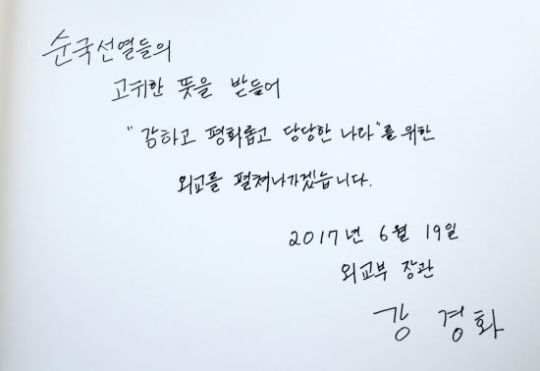 순국선열들의
고귀한 뜻을 받들어
"강하고 평화롭고 당당한 나라"를 위한
외교를 펼쳐나가겠습니다.
2017년 6월 19일
외교부 장관
강 경화